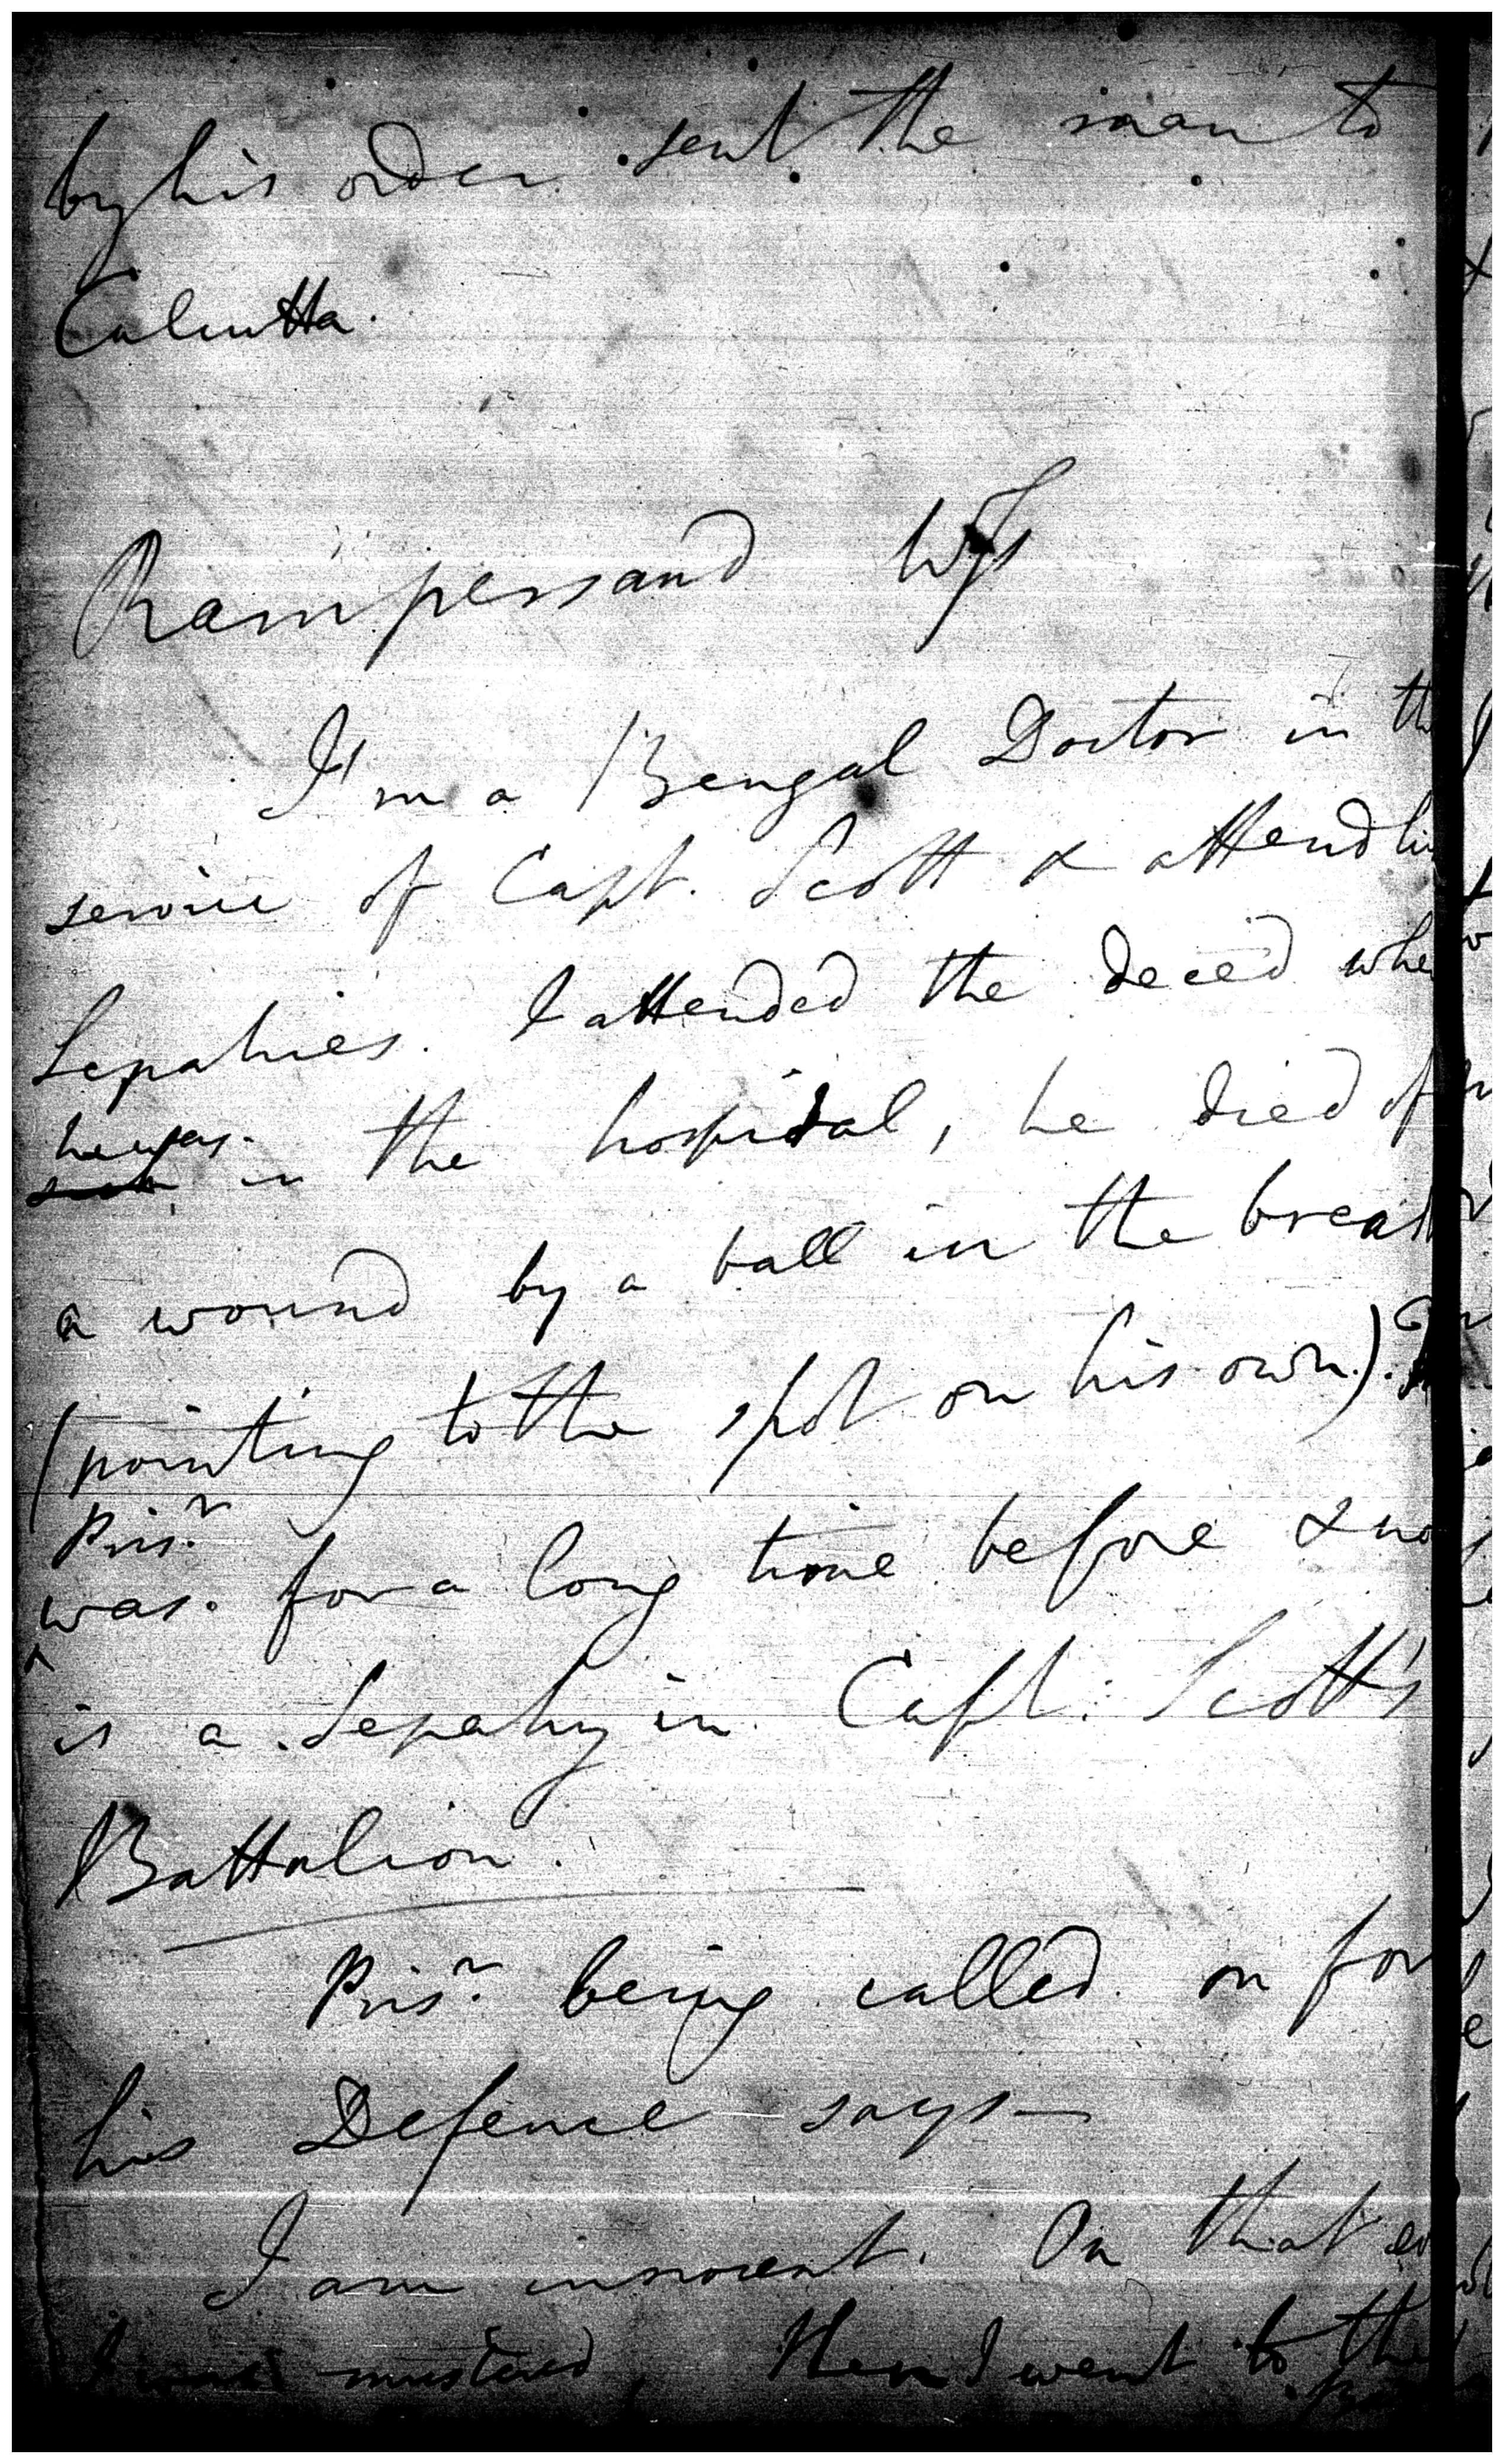 by his order sent the man to
Calcutta.
Rampersaud
I'm a Bengal Doctor in the
service of Capt. Scott & attend his
Sepahies. I attended the deced when
he was
in the hospital, he died of
a wound by a ball in the breast
(pointing to the spot on his own).
Prisr
was for a long time before & now
is a Sepahy in Capt. Scott's
Battalion.
Prisr being called on for
his Defence says—
I am innocent. On that
I was mustered, then I went to the